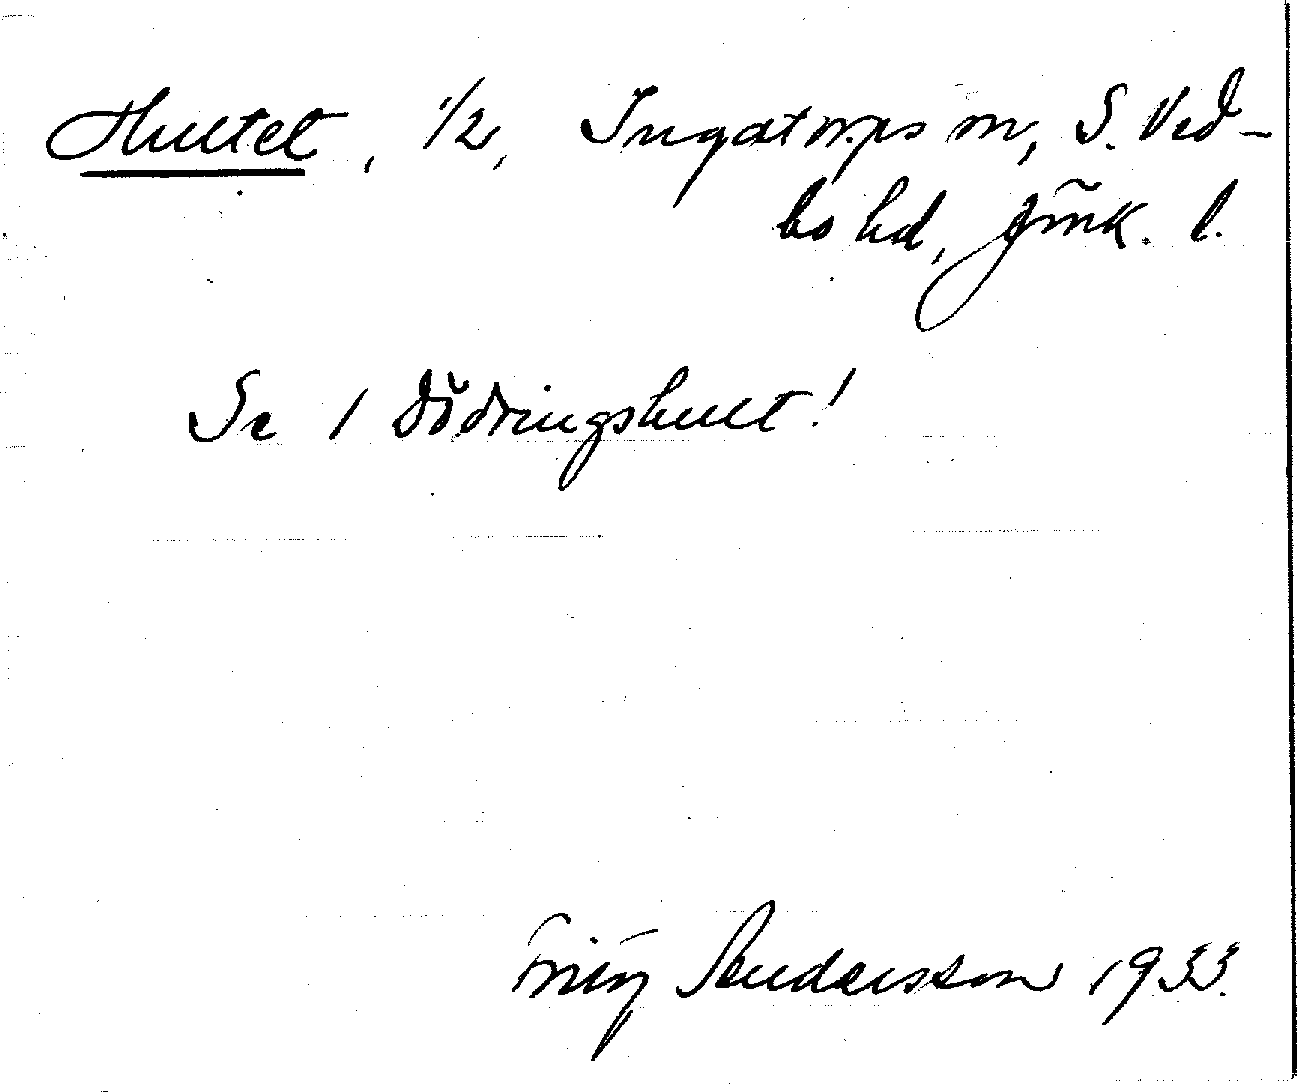 Hultet, 1/2, Ingatorps sn, S. Ved-
bo hd, Jönk. l.
Se 1 Dödringshult!
Andersson 1933.